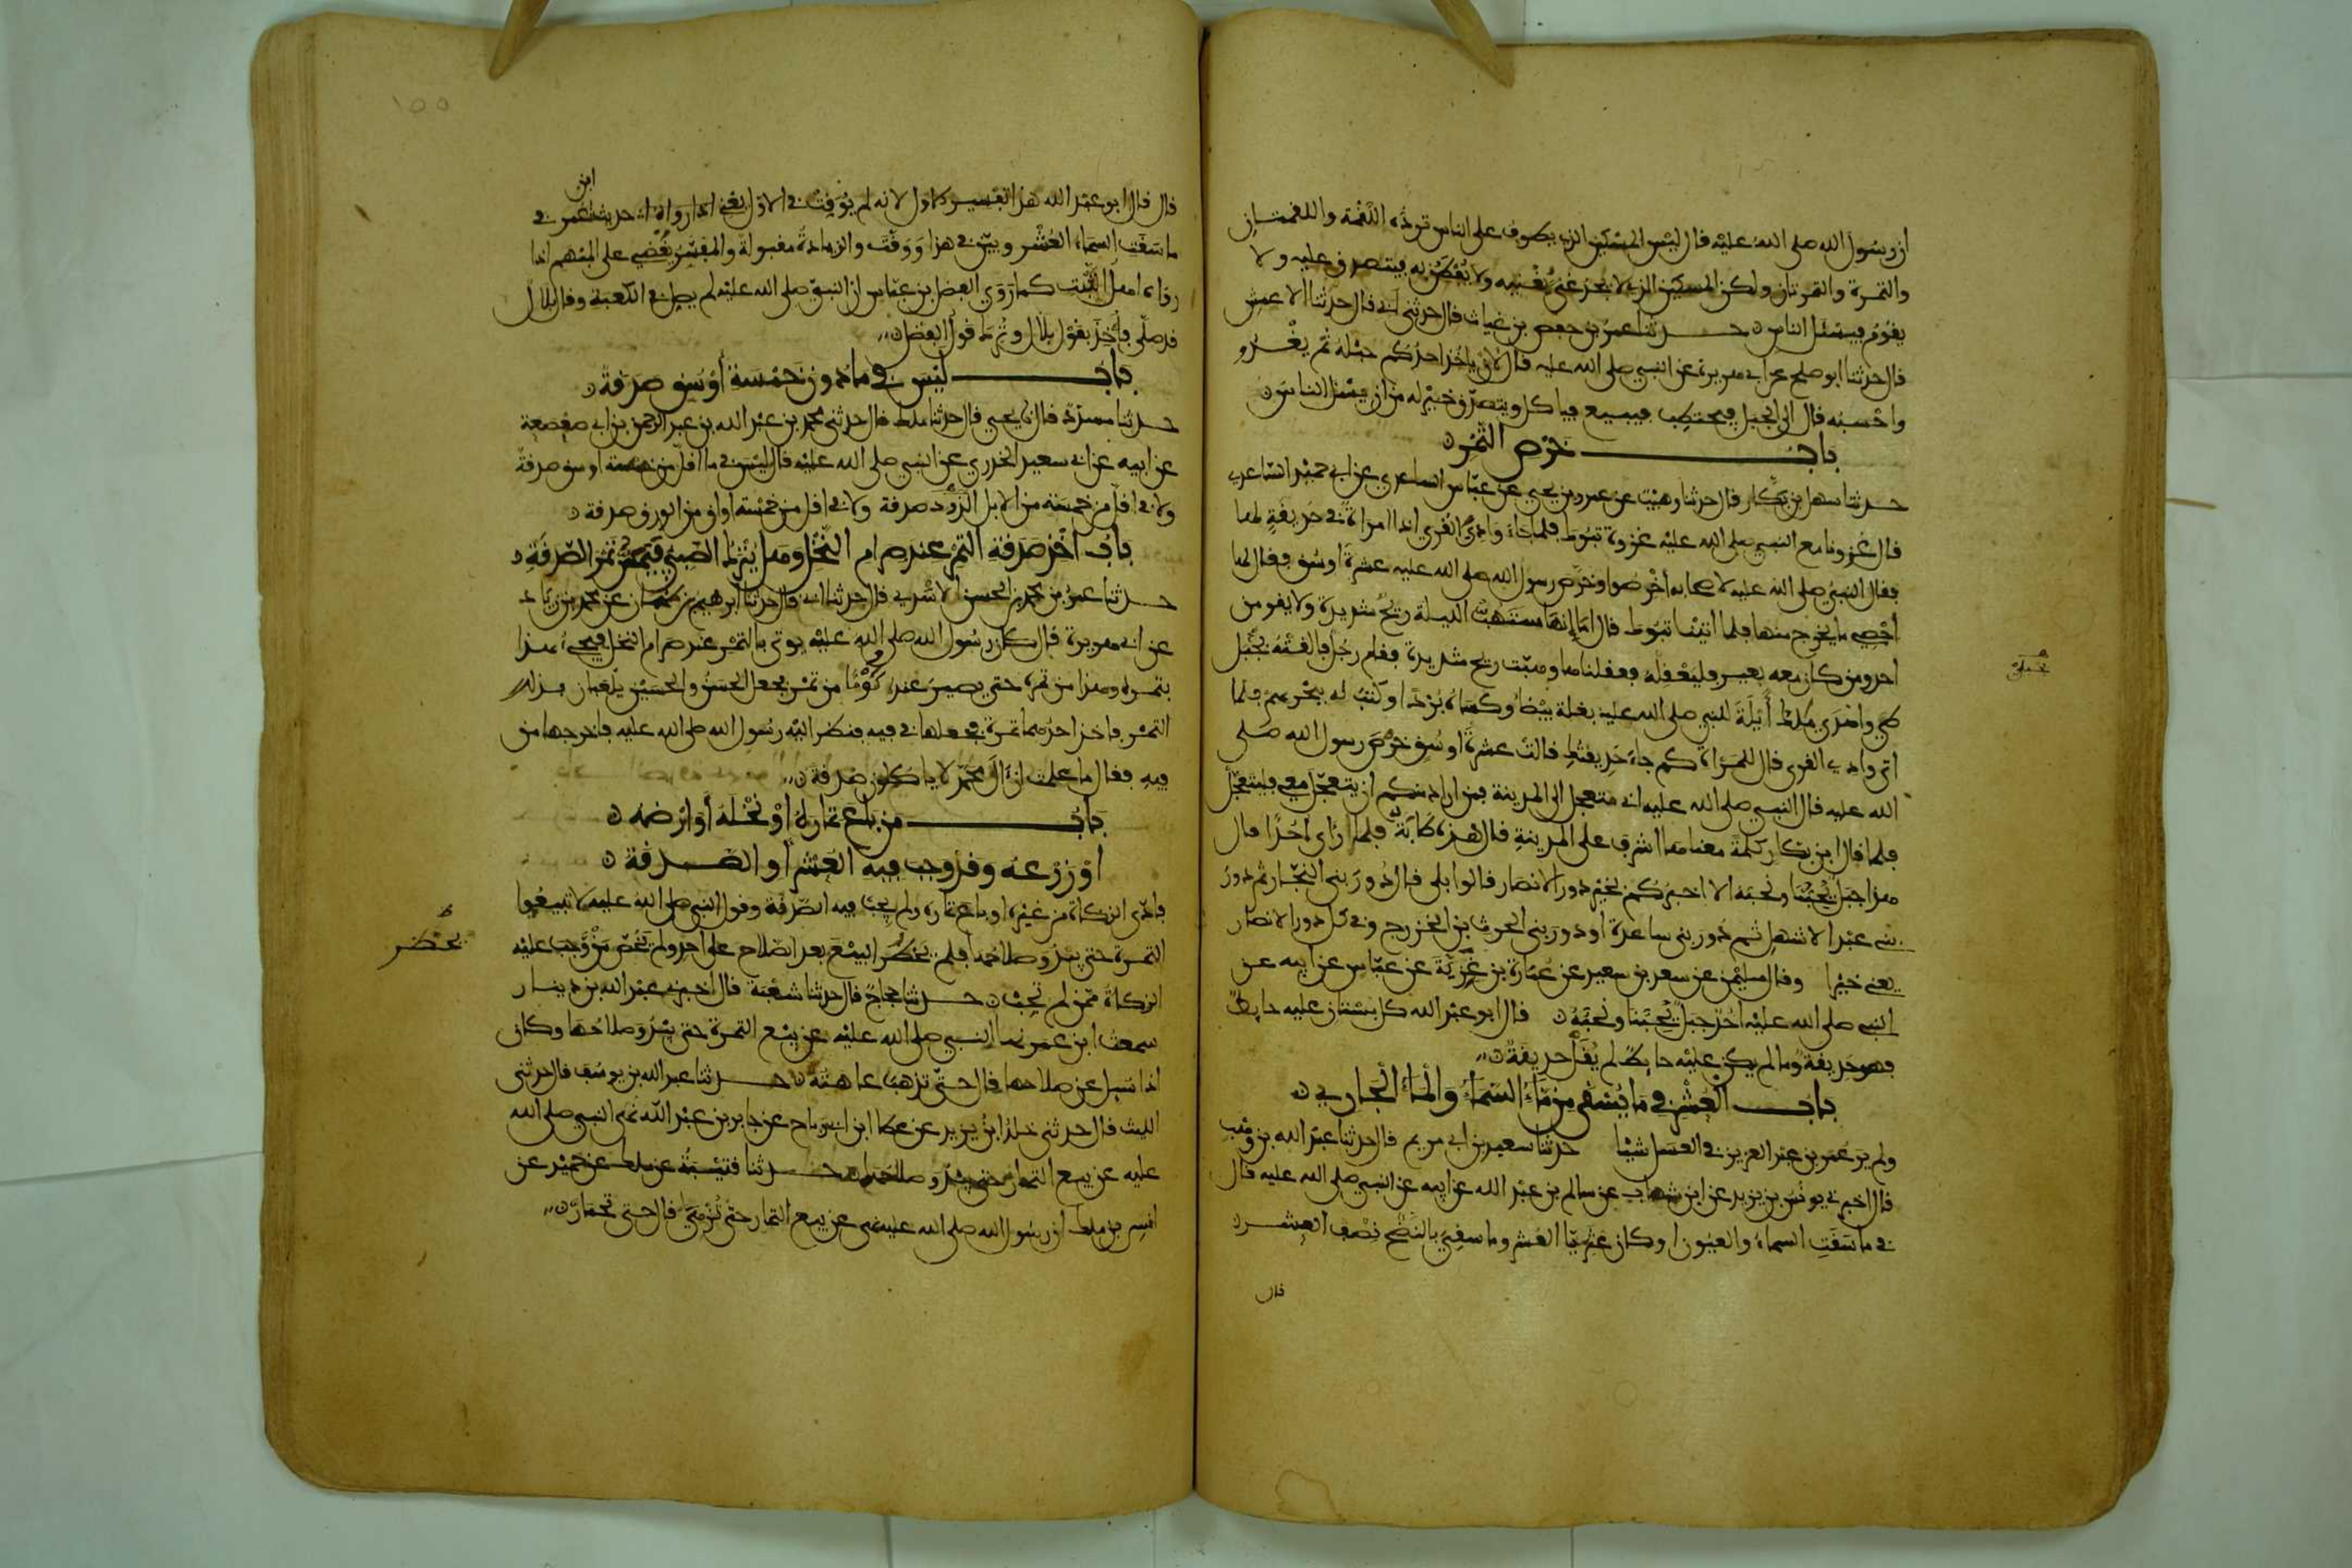 ان رسول الله صلى الله عليه قال ليس المسكين الذي يطوف على الناس ترده اللقمة واللقمتان
والتمرة والتمرتان ولكن المسكين الذي لا يجد غنى يغنيه ولا يفطن به فيتصدق عليه ولا
يقوم فيسئل الناس حدثنا عمر بن حفص بن غياث قال حدثني ابي قال حدثنا الاعمش
قال حدثنا ابو صلح عن ابي هريرة عن النبي صلى الله عليه قال لان ياخذ احدكم حبله ثم يغدو
واحسبه قال الى الجبل فيحتطب فيبيع فياكل ويتصدق خير له من ان يسئل الناس
باب خرص التمر
حدثنا سهل بن بكار قال حدثنا وهيب عن عمرو بن يحيى عن عباس الساعدي عن ابي حميد الساعدي
قال غزونا مع النبي صلى الله عليه غزوة تبوك فلما جاء وادي القرى اذا امراة في حديقة لها
فقال النبي صلى الله عليه لاصحابه اخرصوا وخرص رسول الله صلى الله عليه عشرة اوسق فقال لها
احصي ما يخرج منها فلما اتينا تبوك قال اما إنها ستهب الليلة ريح شديدة ولا يقومن
احد ومن كان معه بعير فليعقله فعقلناها وهبت ريح شديدة فقام رجل فالقته بجبل
طي واهدى ملك أيلة للنبي صلى الله عليه بغلة بيضاء وكساه بردا وكتب له ببحرهم فلما
اتى وادي القرى قال للمراة كم جاء حديقتك قالت عشرة اوسق خرص رسول الله صلى
الله عليه قال النبي صلى الله عليه اني متعجل الى المدينة فمن اراد منكم ان يتعجل معي فليتعجل
فلما قال ابن بكار كلمة معناها اشرف على المدينة قال هذه طابة فلما رأى احدا قال
هذا جبل يحبنا ونحبه الا اخبركم بخير دور الانصار قالوا بلى قال دور بني النجار ثم دور
بني عبد الاشهل ثم دور بني ساعدة او دور بني الحرث بن الخزرج وفي كل دور الانصار
يعني خيرا وقال سليمن عن سعد بن سعيد عن عمارة بن غزية عن عباس عن ابيه عن
النبي صلى الله عليه احد جبل يحبنا ونحبه قال ابو عبد الله كل بستان عليه حايط
فهو حديقة وما لم يكن عليه حايط لم يقل حديقة
باب العشر في ما يسقى من ماء السماء والماء الجاري
ولم ير عمر بن عبد العزيز في العسل شيئا حدثنا سعيد بن ابي مريم قال حدثنا عبد الله بن وهب
قال اخبرني يونس بن يزيد عن ابن شهاب عن سالم بن عبد الله عن ابيه عن النبي صلى الله عليه قال
في ما سقت السماء والعيون او كان عثريا العشر وما سقي بالنضح نصف العشر
قال
١٥٥
قال قال ابو عبد الله هذا تفسير الاول لانه لم يوقت في الاول يعني حديث ابن عمر في
ما سقت السماء العشر وبين في هذا ووقت والزيادة مقبولة والمفسر يقضي على المبهم اذا
رواه اهل الثبت كما روى الفضل بن عباس ان النبي صلى الله عليه لم يصل في الكعبة وقال بلال
قد صلى فأخذ بقول بلال وترك قول الفضل
باب ليس في ما دون خمسة أوسق صدقة
حدثنا مسدد قال يحيى قال حدثنا ملك قال حدثني محمد بن عبد الله بن عبد الرحمن بن ابي صعصعة
عن ابيه عن ابي سعيد الخدري عن النبي صلى الله عليه قال ليس في ما اقل من خمسة اوسق صدقة
ولا في اقل من خمسة من الابل الذود صدقة ولا في اقل من خمسة اواق من الورق صدقة
باب اخذ صدقة التمر عند صرام النخل وهل يترك الصبي فيمس تمر الصدقة
حدثنا عمر بن محمد بن الحسن الاسدي قال حدثنا ابي قال حدثنا ابرهيم بن طهمان عن محمد بن زياد
عن ابي هريرة قال كان رسول الله صلى الله عليه يوتى بالتمر عند صرام النخل فيجيء هذا
بتمره وهذا من تمره حتى يصير عنده كوما من تمر فجعل الحسن والحسين يلعبان بذلك
التمر فاخذ احدهما تمرة فجعلها في فيه فنظر اليه رسول الله صلى الله عليه فاخرجها من
فيه فقال ما علمت ان آل محمد لا ياكلون صدقة
باب من باع ثماره أو نخله أو ارضه
او زرعه وقد وجب فيه العشر او الصدقة
فادى الزكاة من غيره او باع ثماره ولم يجب فيه الصدقة وقول النبي صلى الله عليه لا تبيعوا
الثمرة حتى يبدو صلاحها فلم يحظر البيع بعد الصلاح على احد ولم يخص من وجب عليه
يحظر
الزكاة ممن لم تجب حدثنا حجاج قال حدثنا شعبة قال اخبرني عبد الله بن دينار
سمعت ابن عمر نهى النبي صلى الله عليه عن بيع الثمرة حتى يبدو صلاحها وكان
اذا سيل عن صلاحها قال حتى تذهب عاهته حدثنا عبد الله بن يوسف قال حدثني
الليث قال حدثني خلد ابن يزيد عن عطا ابن ابي رباح عن جابر بن عبد الله نهى النبي صلى الله
عليه عن بيع الثمار حتى يبدو صلاحها حدثنا قتيبة عن ملك عن حميد عن
انس بن ملك ان رسول الله صلى الله عليه نهى عن بيع الثمار حتى تزهي قال حتى تحمار